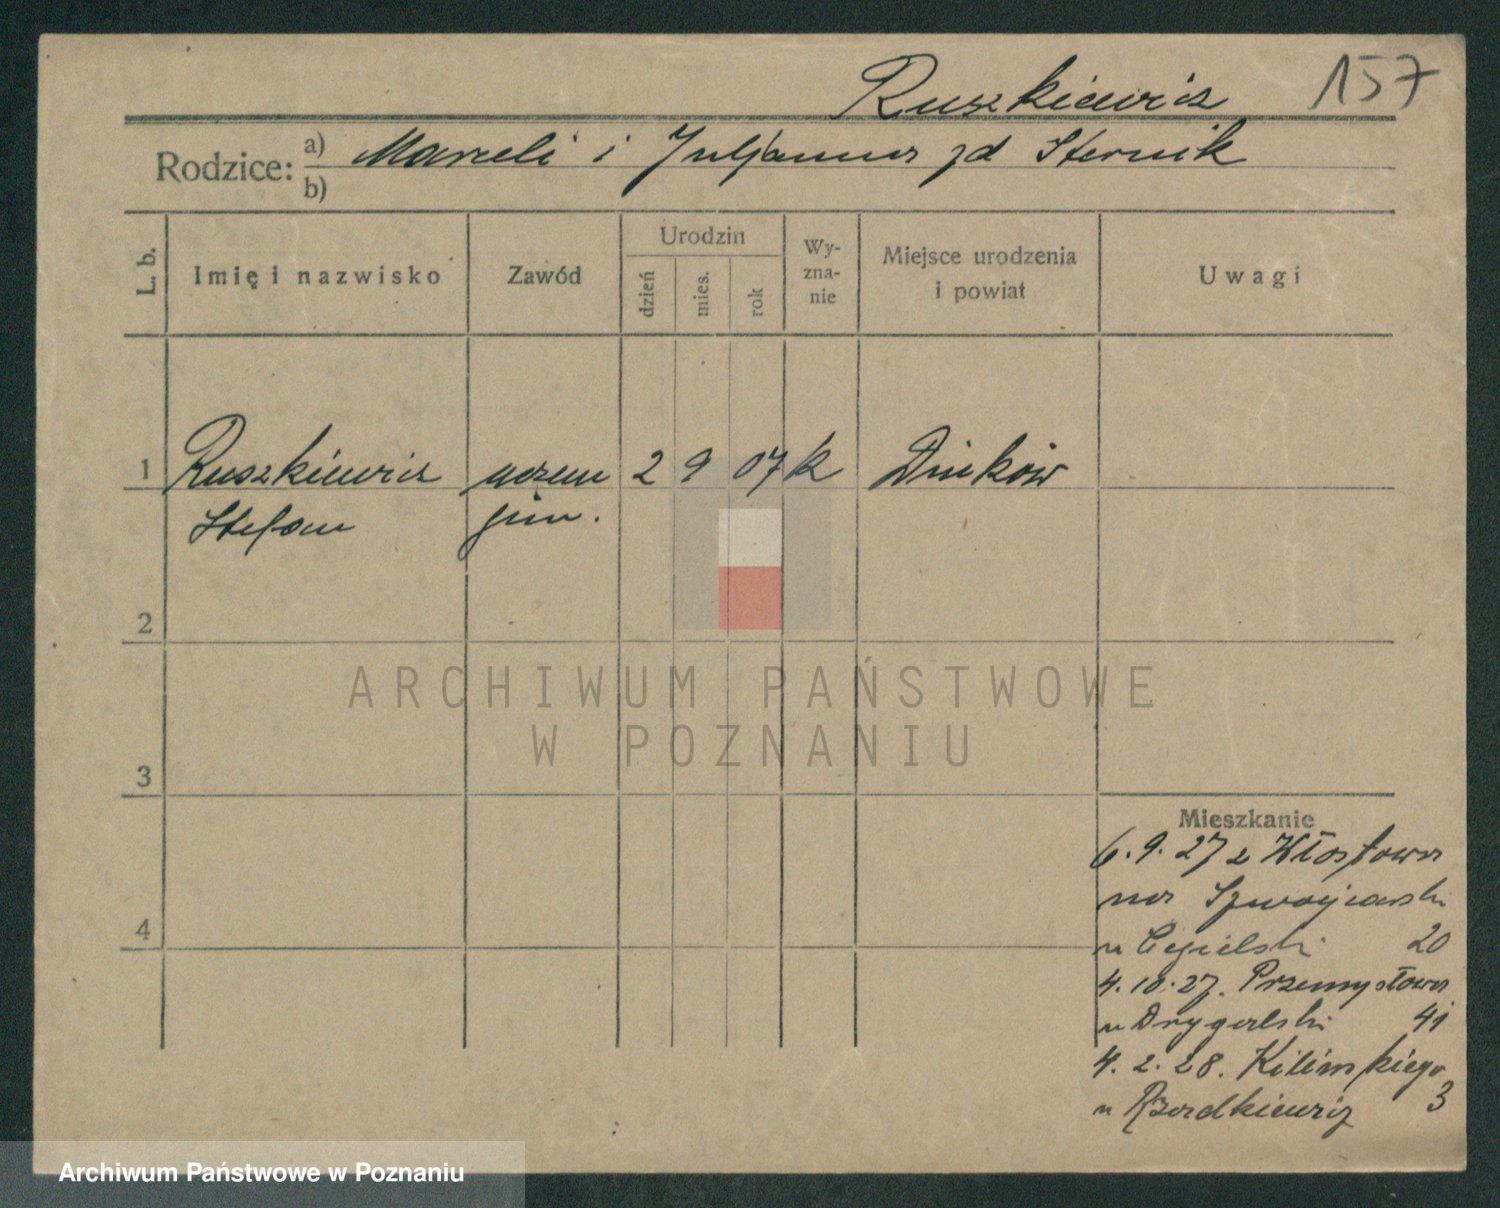 Ruszkiewicz 157
Rodzice: a) Marceli i Juljanna zd Sternik
b)
L. b. Imię i nazwisko Zawód Urodzin dzień mies. rok Wyznanie Miejsce urodzenia i powiat Uwagi
1 Ruszkiewicz uczeń 2 9 07 k
Stefan gim.
2
ARCHIWUM PAŃSTWOWE
W POZNANIU
3
Mieszkanie
6.9.27 z
na
4 u Cegielski 20
4.10.27. Przemysłowa
u Drygalski 41
4.2.28. Kilińskiego
u Rzadkiewicz 3
Archiwum Państwowe w Poznaniu